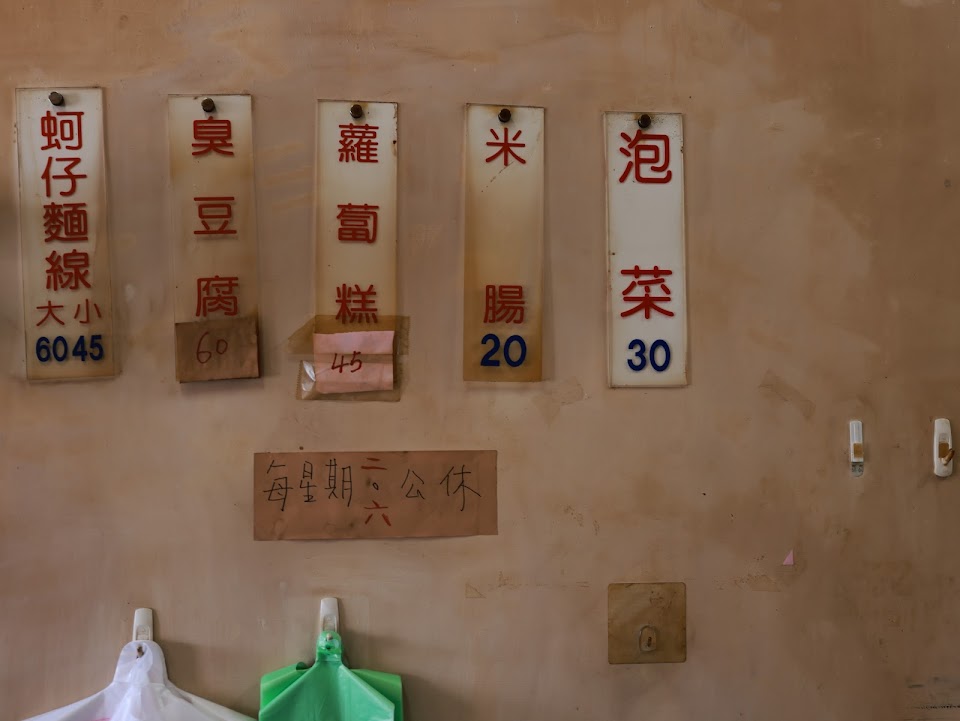 蚵仔麵線
大小
60 45
臭豆腐
60
蘿蔔糕
45
米腸
20
泡菜
30
每星期二。六公休